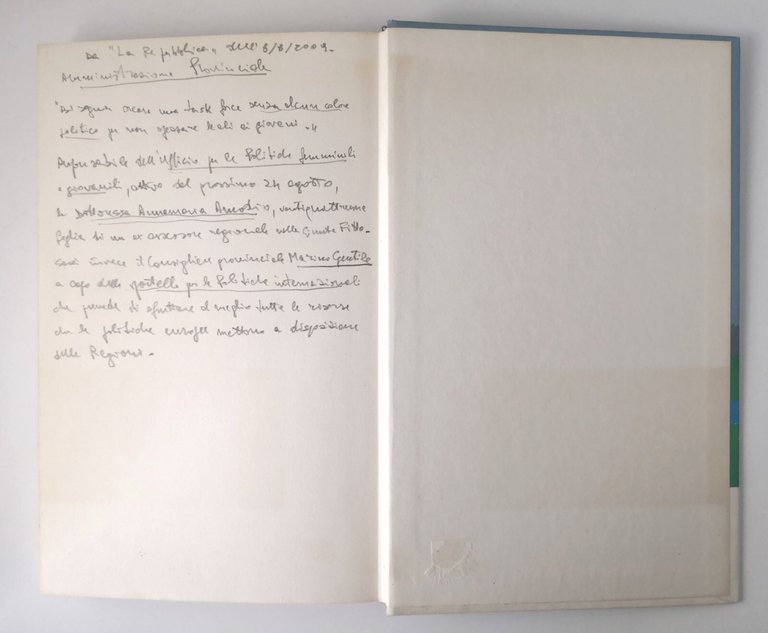 Da "La Repubblica" dell' 8/8/2009.
Amministrazione Provinciale
"Bisogna creare una task force senza alcun colore
politico per non spezzare le ali ai giovani."
Responsabile dell'Ufficio per le Politiche femminili
e giovanili, attivo dal prossimo 24 agosto,
la Dottoressa Annamaria, ventiquattrenne
figlia di un ex assessore regionale nella Giunta Fitto.
Sarà invece il Consigliere provinciale Marino Gentile
a capo dello sportello per le Politiche internazionali
che prevede di sfruttare al meglio tutte le risorse
che le politiche europee mettono a disposizione
delle Regioni.